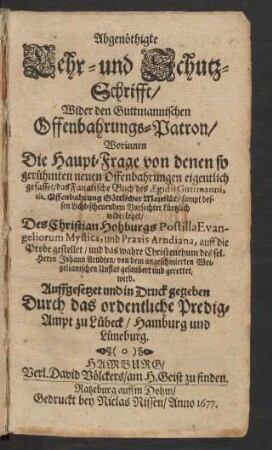 Abgenöthigte
Lehr- und Schutz-
Schrifft/
Wider den Guttmannischen
Offenbahrungs-Patron/
Worinnen
Die Haupt-Frage von denen so
gerühmten neuen Offenbahrungen eigentlich
gefasset/ das Fanatische Buch des Ægidii Gutmanni,
tit. Offenbahrung Göttlicher Majestät/ sampt des-
sen Liecht-scheuendem Verfechter kürtzlich
widerleget/
Des Christian Hohburgs Postilla Evan-
geliorum Mystica, und Praxis Arndiana, auff die
Probe gestellet / und das wahre Christenthum des sel.
Herrn Johann Arndten/ von dem angeschmierten Wei-
gelianischen Unflat gesaubert und gerettet,
wird.
Auffgesetzet und in Druck gegeben
Durch das ordentliche Predig-
Ampt zu Lübeck/ Hamburg und
Lüneburg.
HAMBURG/
Verl. David Völckers/ am H. Geist zu finden.
Ratzeburg auffm Dohm/
Gedruckt bey Niclas Nissen/ Anno 1677.